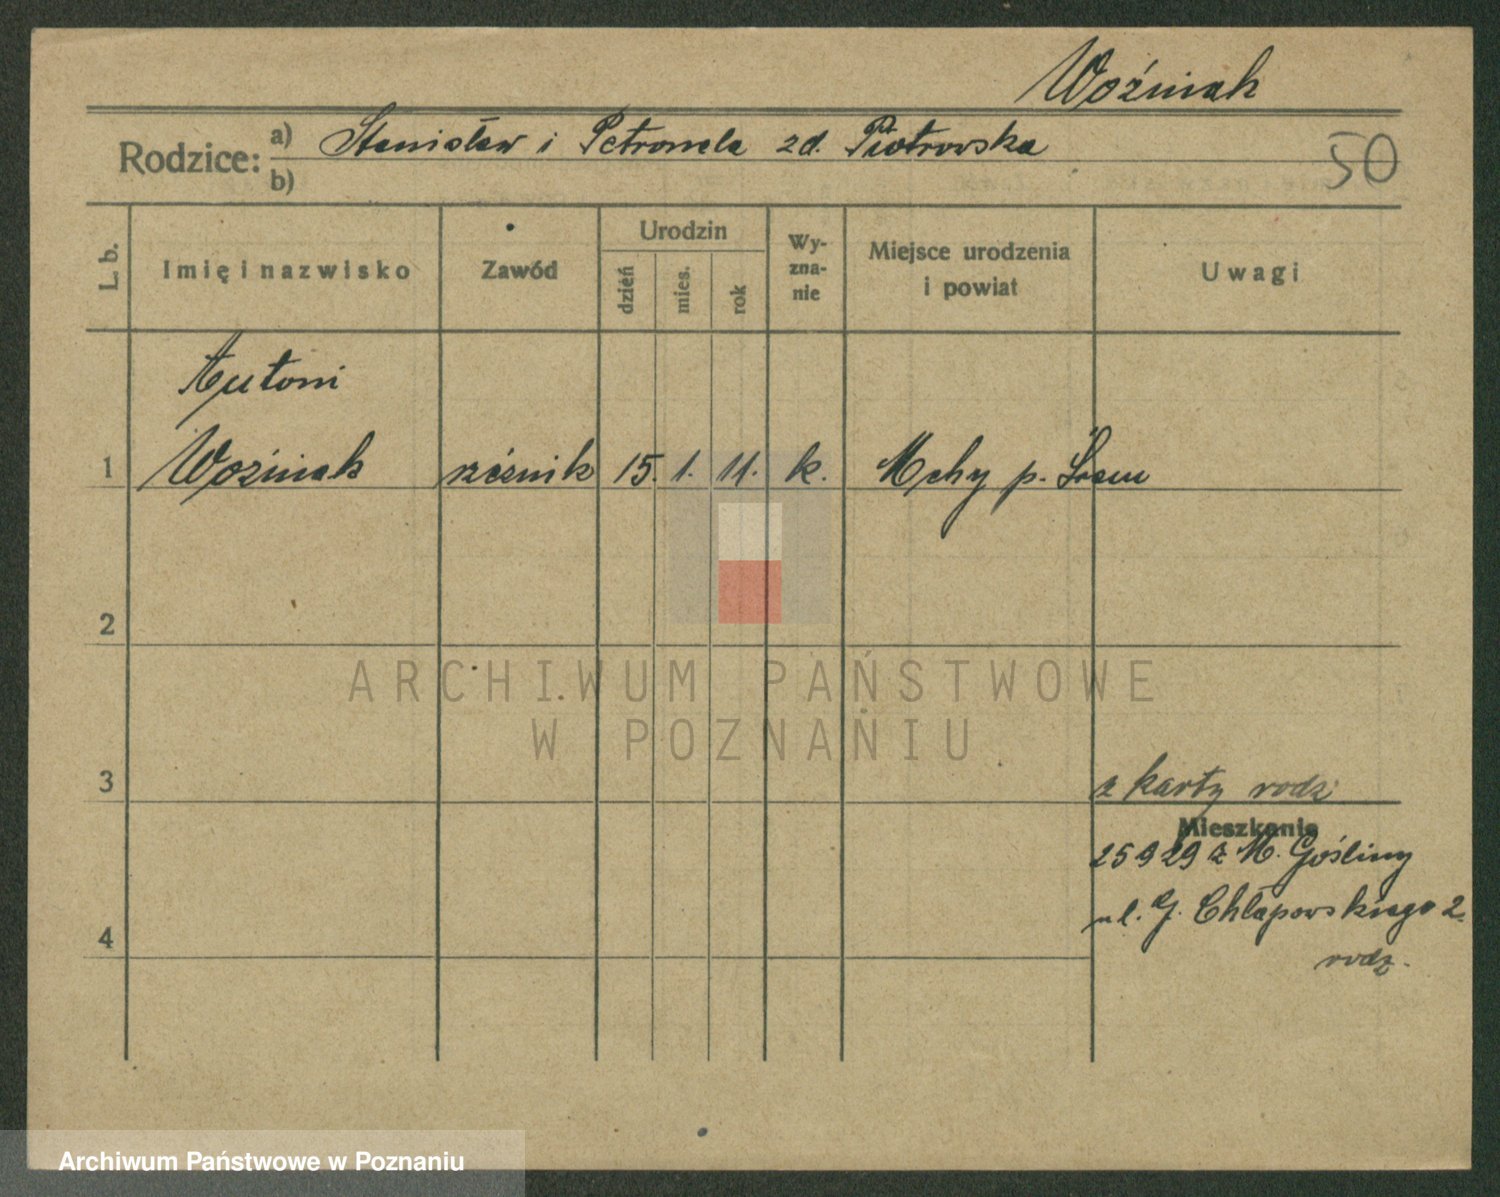 Woźniak
Rodzice: a) Stanisław i Petronela zd. Piotrowska
b)
50
L. b.
Imię i nazwisko
Zawód
Urodzin
dzień
mies.
rok
Wy-
zna-
nie
Miejsce urodzenia
i powiat
Uwagi
Antoni
1 Woźniak rzeźnik 15. 1. 11. k. Mchy p. Śrem
2
ARCHIWUM PAŃSTWOWE
W POZNANIU
3
z karty rodz.
Mieszkanie
25 9 29 z M. Gośliny
ul. G. Chłapowskiego 2.
4
rodz.
Archiwum Państwowe w Poznaniu